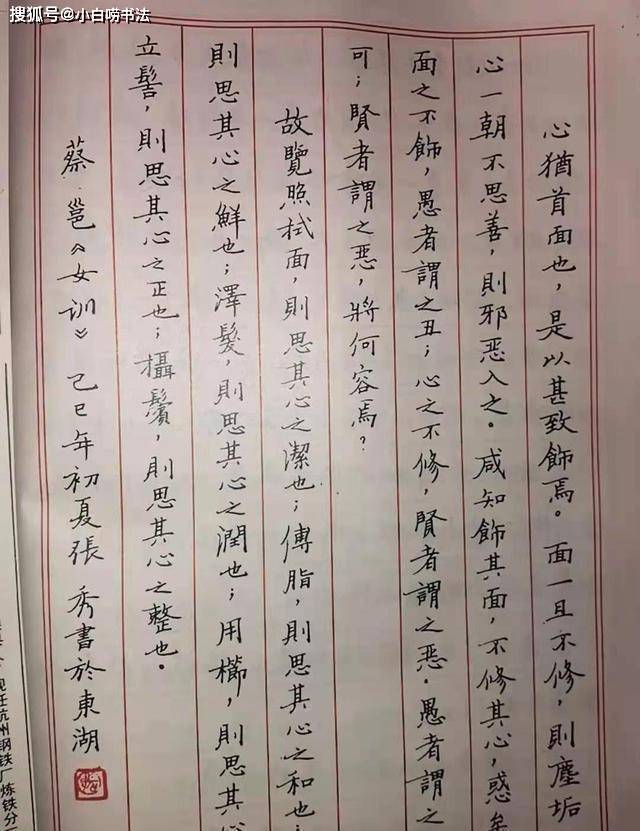 搜狐号@小白唠书法
心猶首面也，是以甚致飾焉。面一旦不修，則塵垢
心一朝不思善，則邪恶入之。咸知飾其面，不修其心，惑矣
面之不飾，愚者謂之丑；心之不修，賢者謂之恶。愚者謂之
可；賢者謂之恶，將何容焉？
故覽照拭面，則思其心之潔也；傅脂，則思其心之和也；
則思其心之鮮也；澤髮，則思其心之潤也；用櫛，則思其心
立髻，則思其心之正也；攝鬢，則思其心之整也。
蔡邕《女训》 己巳年初夏張秀書於東湖
现任杭州钢铁厂炼铁分